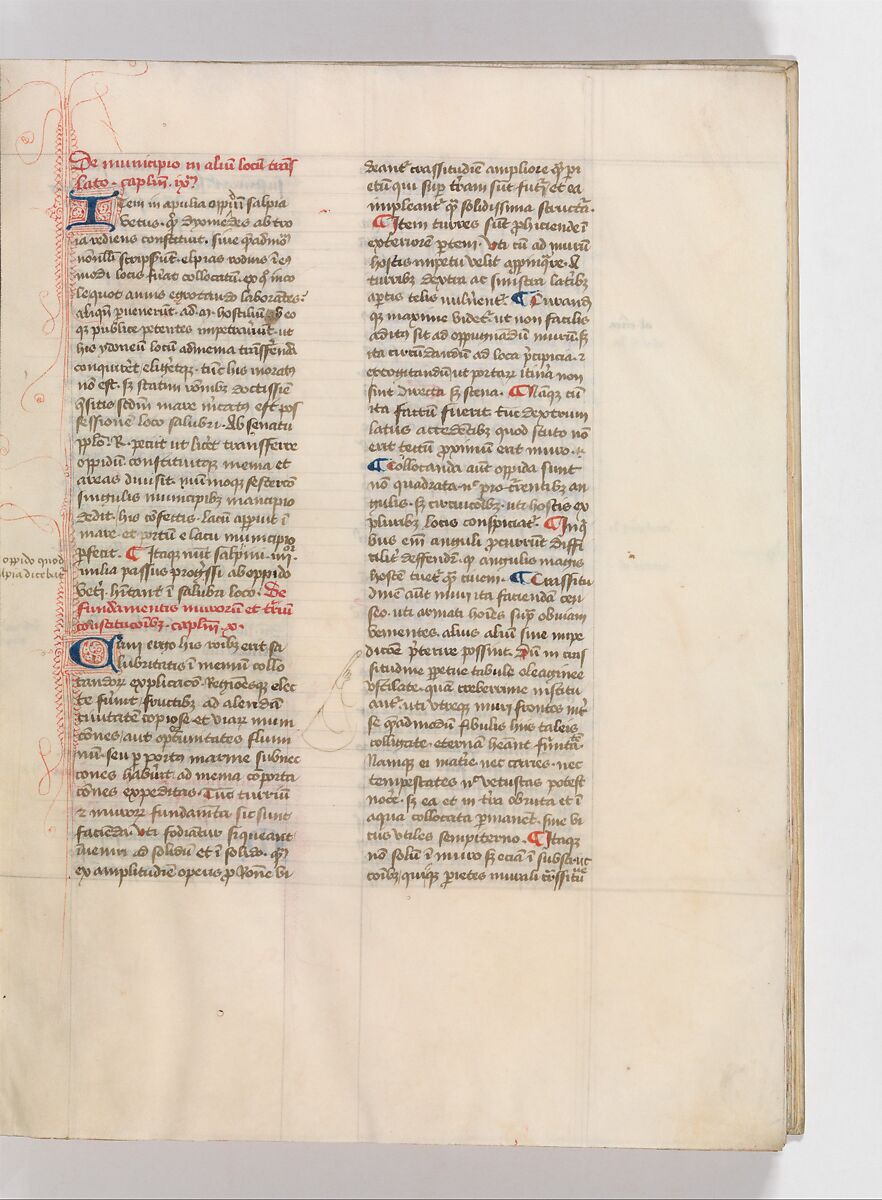 De municipio in aliū locū trās
lato. caplm. ix.
Item in apulia oppidū salpia
vetus. qd dyomedes ab tro
ia rediens constituit. siue quēadmod
nonnulli scripserūt. elpias rodius ī eius
modi locis fuerat collocatū. ex quo inco
le quot annis egrotando laborantes.
aliqn puenerūt. ad. m. hostiliū ab eo
qz publice petentes impetrauerūt. ut
his ydoneū locū ad menia trāsferēda
conquireret eligeretqz. tūc his moratus
nō est. sz statim rōnibz doctissie
qsitis scdm mare mercatus est pos
sessionē loco salubri. Ab senatu
pploqz. R. petiit ut liceret transferre
oppidū. constituitqz menia et
areas diuisit. nūmoqz sestercō
singulis municipibz mancipio
dedit. his cōfectis. lacū apperuit ī
mare. et portū e lacu municipio
pfecit. Itaqz nūc salpini. iiii.or
milia passus progressi ab oppido
veteri. hītant ī salubri loco. De
fundamentis murorū et turriū
constitucoībz. caplm. x.
Cum ergo his rōibz erit sa
lubritatis ī meniū collo
candor explicacō. Regiōesqz elec
te fuerint. fructibz ad alendā
ciuitatē copiose et viar muni
cōnes. aut oportunitates flumi
nū. seu p portus marine subuec
cōnes habuerit ad menia cōporta
cōnes expeditas. Tūc turriū
& muror fundamēta sic sunt
faciēda. vti fodiātur si queant
inueniri ad solidū et ī solido. qtū
ex amplitudiē operis p rōne vi
oppido quod
salpia dicebatur
deant. crassitudiē ampliore qz pi
etū qui sup terram sūt futuri et ea
impleant qz solidissima structura.
Item turres sūt phiciende ī
exteriorē partem. vti cū ad murū
hostis impetu velit appinqre. A
turribz dextra ac sinistra lateribz
aptis telis vulnerent. Curandū
qz maxime videtur ut non facilis
aditus sit ad oppugnādū murū. sz
ita circūdandū ad loca precipicia. &
excogitandū ut portar itinera non
sint directa sz scena. Naqz cū
ita factū fuerit tūc dextrum
latus accedētibz quod scuto nō
erit tectū proximū erit muro.
Collocanda aut oppida sunt
nō quadrata. nec procurrentibz an
gulis. sz circuicōibz. uti hostis ex
pluribz locis conspiciatur. In qui
bus eīm anguli procurrūt. diffi
ciliter deffendit. qz angulus magis
hostē tuetur qz ciuem. Crassitu
dinē aut muri ita faciendā cen
seo. uti armati hoīes supra obuiam
venientes. alius aliū sine impe
dicōe preterire possint. Dū in cras
situdine perpetue tabule oleaginee
vstilate. quā creberrime institu
antur. uti utreqz muri frontes inter
se quēadmodū fibulis hiis taleis
colligate. eternā heant firmitatē.
Namqz ei materie nec caries. nec
tempestates nec vetustas potest
nocere. sz ea et in terra obruta et ī
aqua collocata permanet. sine vi
tiis vtiles sempiterno. Itaqz
nō solū ī muro sz eciā ī substruc
cōibz quiqz parietes murali crassitudine